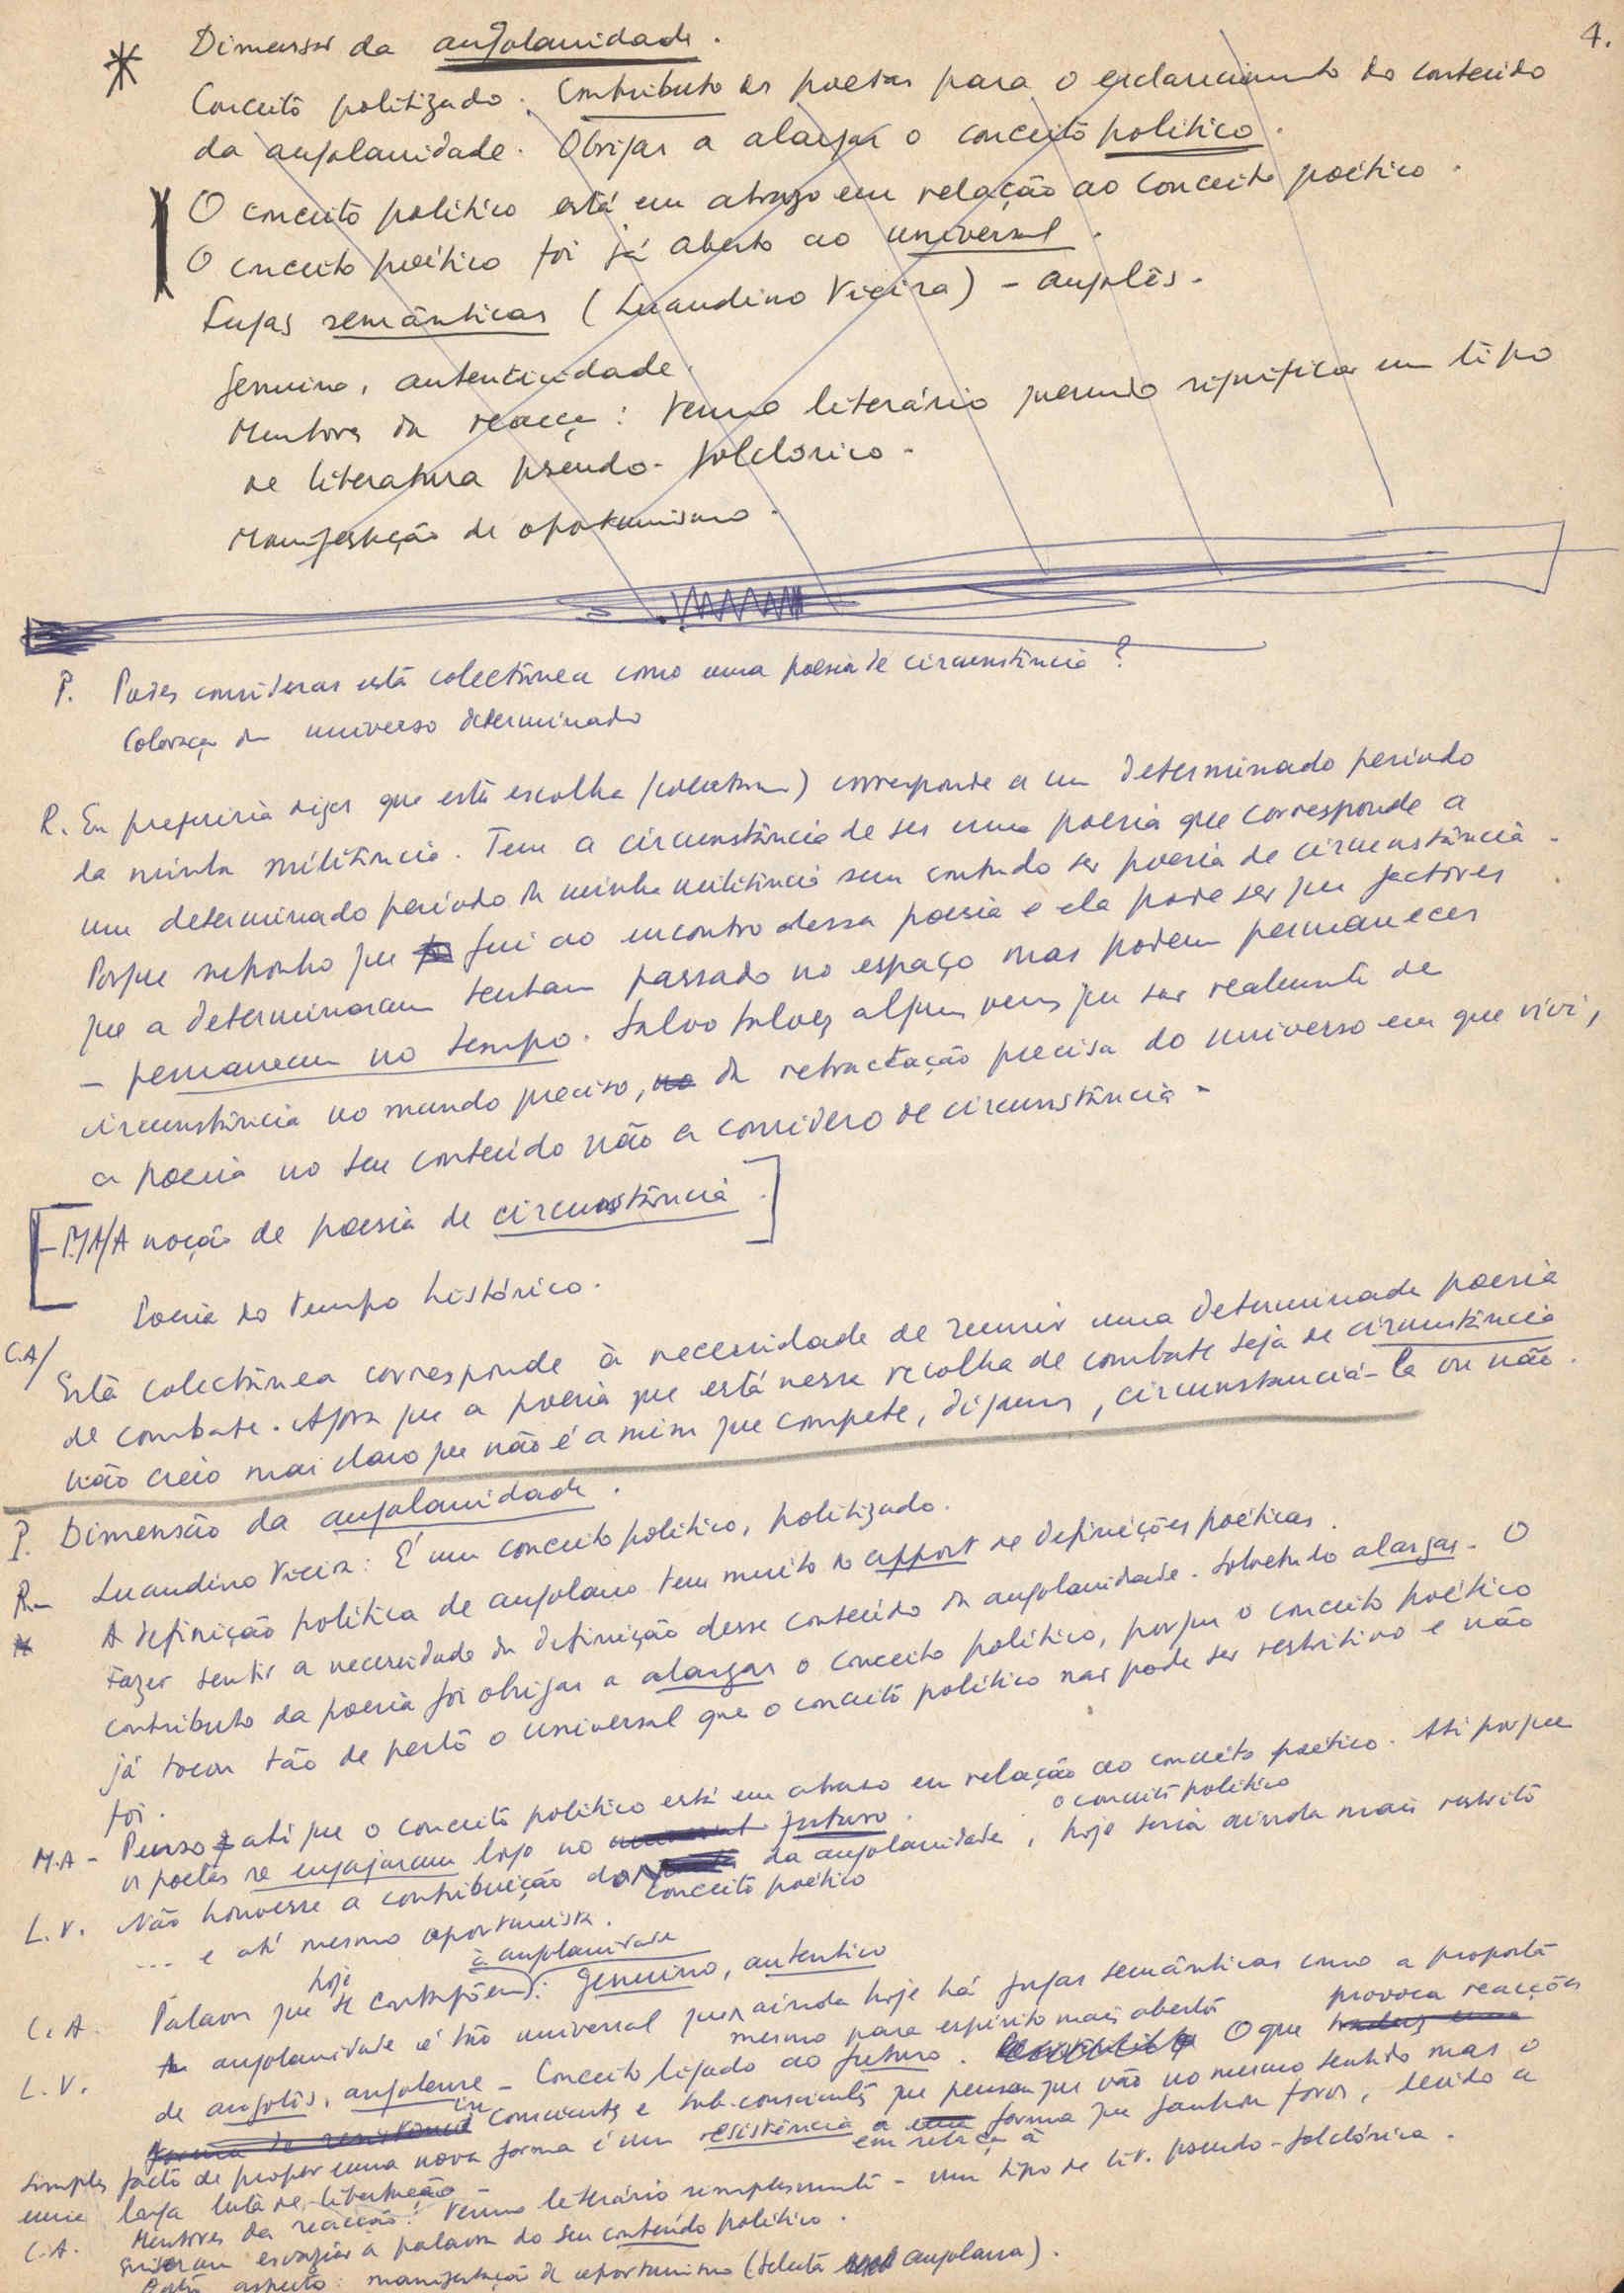 4.
* Dimensão da angolanidade.
Conceito politizado. Contributo dos poetas para o esclarecimento do conteúdo
da angolanidade. Obrigar a alargar o conceito político.
O conceito político está em atrazo em relação ao conceito poético.
O conceito poético foi já aberto ao universal.
Fugas semânticas (Luandino Vieira) - angolês.
Genuino, autenticidade.
Mentores da reacç: termo literário querendo significar um tipo
de literatura pseudo-folclórico.
Manifestação de oportunismo.
P. Podes considerar esta colectânea como uma poesia de circunstância?
Coloraç do universo determinado
R. Eu preferiria dizer que esta escolha (colectânea) corresponde a um determinado período
da minha militância. Tem a circunstância de ser uma poesia que corresponde a
um determinado período da minha militância sem contudo ser poesia de circunstância.
Porque suponho que fui ao encontro dessa poesia e ela pode ser que factores
que a determinaram tenham passado no espaço mas podem permanecer
- permanecem no tempo. Salvo talvez alguns versos que são realmente de
circunstância no mundo preciso, da retractação precisa do universo em que vivi,
a poesia no seu conteúdo não a considero de circunstância -
[- MA/A noção de poesia de circunstância.]
Poesia do tempo histórico.
C.A/ Esta colectânea corresponde à necessidade de reunir uma determinada poesia
de combate. Agora que a poesia que está nessa recolha de combate seja de circunstância
não creio mas claro que não é a mim que compete, digamos, circunstanciá-la ou não.
P. Dimensão da angolanidade.
R.- Luandino Vieira: É um conceito político, politizado.
A definição política de angolano tem muito do apport de definições poéticas.
Fazer sentir a necessidade da definição desse conteúdo da angolanidade. Sobretudo alargar. O
contributo da poesia foi obrigar a alargar o conceito político, porque o conceito poético
já tocou tão de perto o universal que o conceito político não pode ser restritivo e não
foi.
M.A - Penso até que o conceito político está em atraso em relação ao conceito poético. Até porque
os poetas se engajaram logo no futuro.
o conceito político
L.V. Não houvesse a contribuição do conceito poético da angolanidade, hoje seria ainda mais restrito
... e até mesmo oportunista.
C.A. Palavras que hoje se contrapõem à angolanidade: genuíno, autentico
L.V. angolanidade é tão universal que ainda hoje há fugas semânticas como a proposta
mesmo para espírito mais aberto
de angolês, angolense - Conceito ligado ao futuro. O que provoca reacções
inconscientes e sub-conscientes que pensam que vão no mesmo sentido mas o
simples facto de propor uma nova forma é uma resistência em relaç à forma que ganhou foros, devido a
uma larga luta de libertação.
C.A. Mentores da reacção: termo literário simplesmente - um tipo de lit. pseudo-folclórica.
Quiseram esvaziar a palavra do seu conteúdo político.
aspecto: manifestação de oportunismo (seleta angolana).